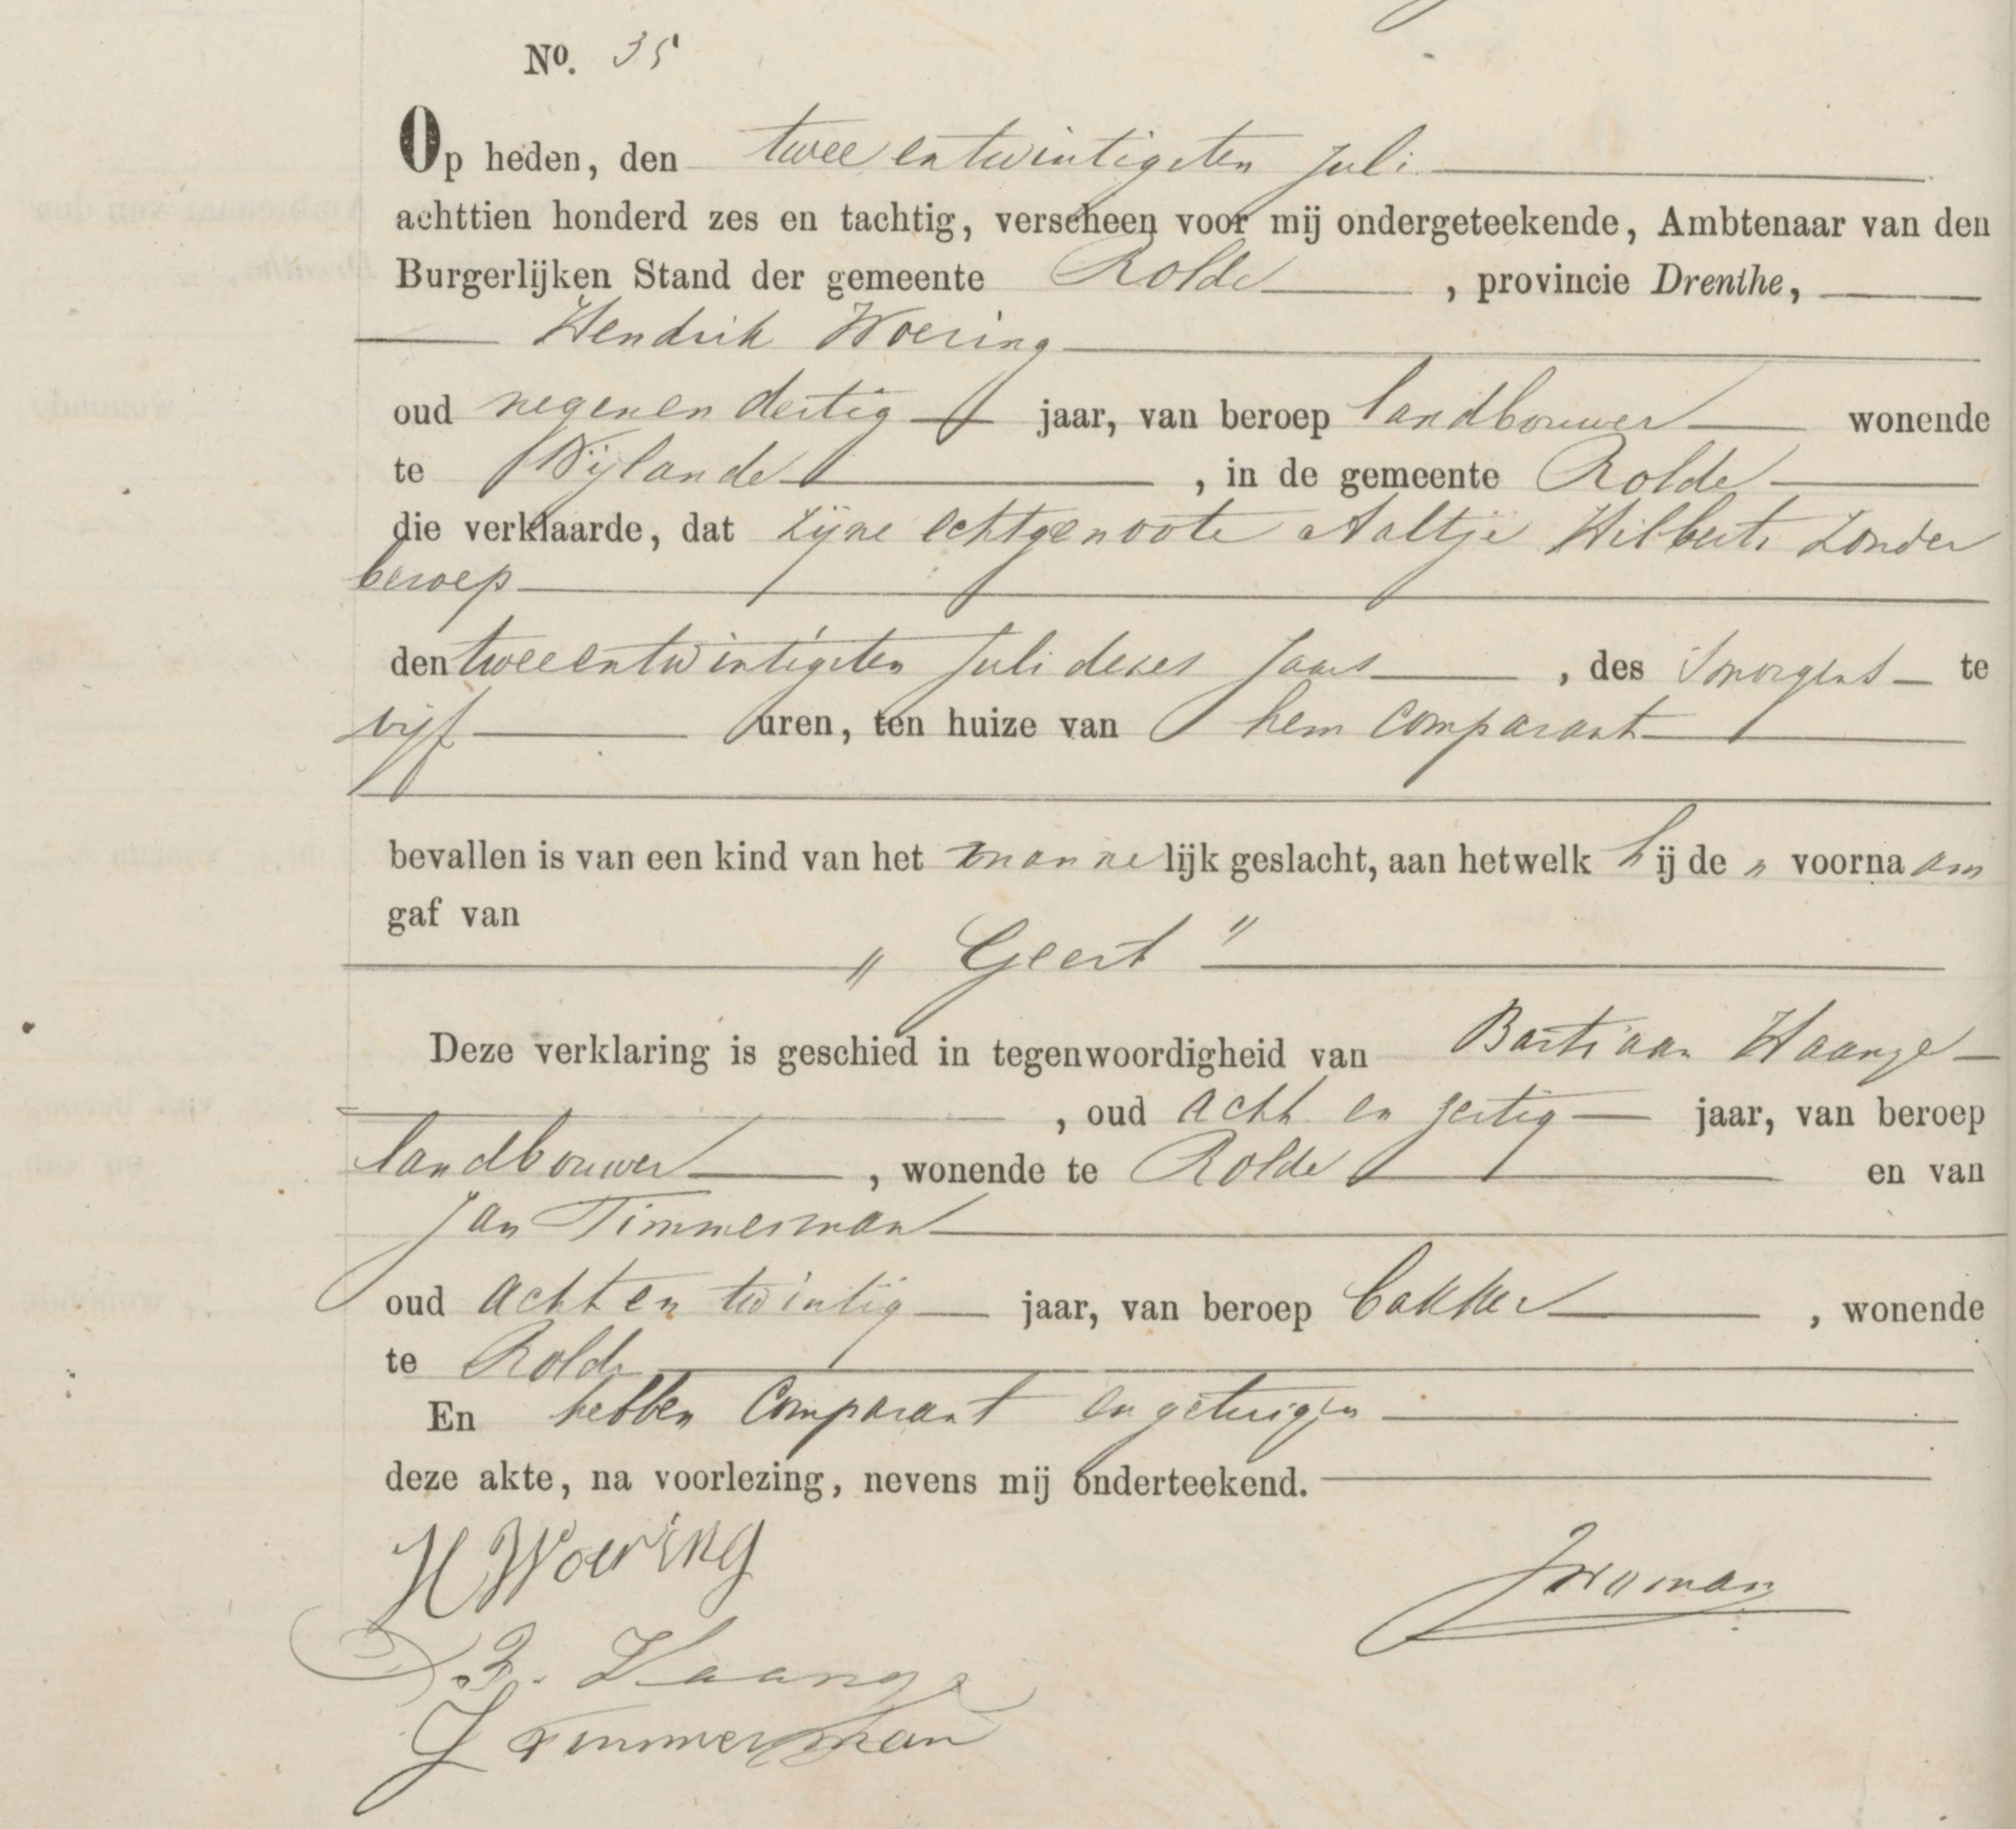 No. 35
Op heden, den twee en twintigsten Juli
achttien honderd zes en tachtig, verscheen voor mij ondergeteekende, Ambtenaar van den
Burgerlijken Stand der gemeente Rolde, provincie Drenthe,
Hendrik Woering
oud negen en dertig jaar, van beroep landbouwer wonende
te Nijlande, in de gemeente Rolde
die verklaarde, dat zijne echtgenoote Aaltje Hilberts zonder
beroep
den twee en twintigsten Juli dezes jaars, des smorgens te
vijf uren, ten huize van hem comparant
bevallen is van een kind van het mannelijk geslacht, aan hetwelk hij de " voornaam
gaf van
" Geert "
Deze verklaring is geschied in tegenwoordigheid van Bastiaan Haange
, oud acht en zestig jaar, van beroep
landbouwer, wonende te Rolde en van
Jan Timmerman
oud acht en twintig jaar, van beroep bakker, wonende
te Rolde
En hebben Comparant en getuigen
deze akte, na voorlezing, nevens mij onderteekend.
H Woering
B. Haange
J Timmerman